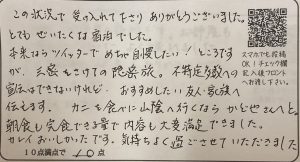 この状況で受け入れて下さりありがとうございました。
とてもぜいたくな宿泊でした。
本来ならツイッターでめちゃ自慢したい！ところです
が、三密をさけての隠密旅。不特定多数への
宣伝はできないけれど、おすすめしたい友人・家族へ
伝えます。カニを食べに山陰へ行くならかどやさんへと。
朝食も完食できる量で内容も大変満足できました。
カレイおいしかったです。気持ちよく過ごさせていただきました
10点満点で 10点
スマホでも投稿
OK！チェック欄
記入後フロント
へお渡し下さい。